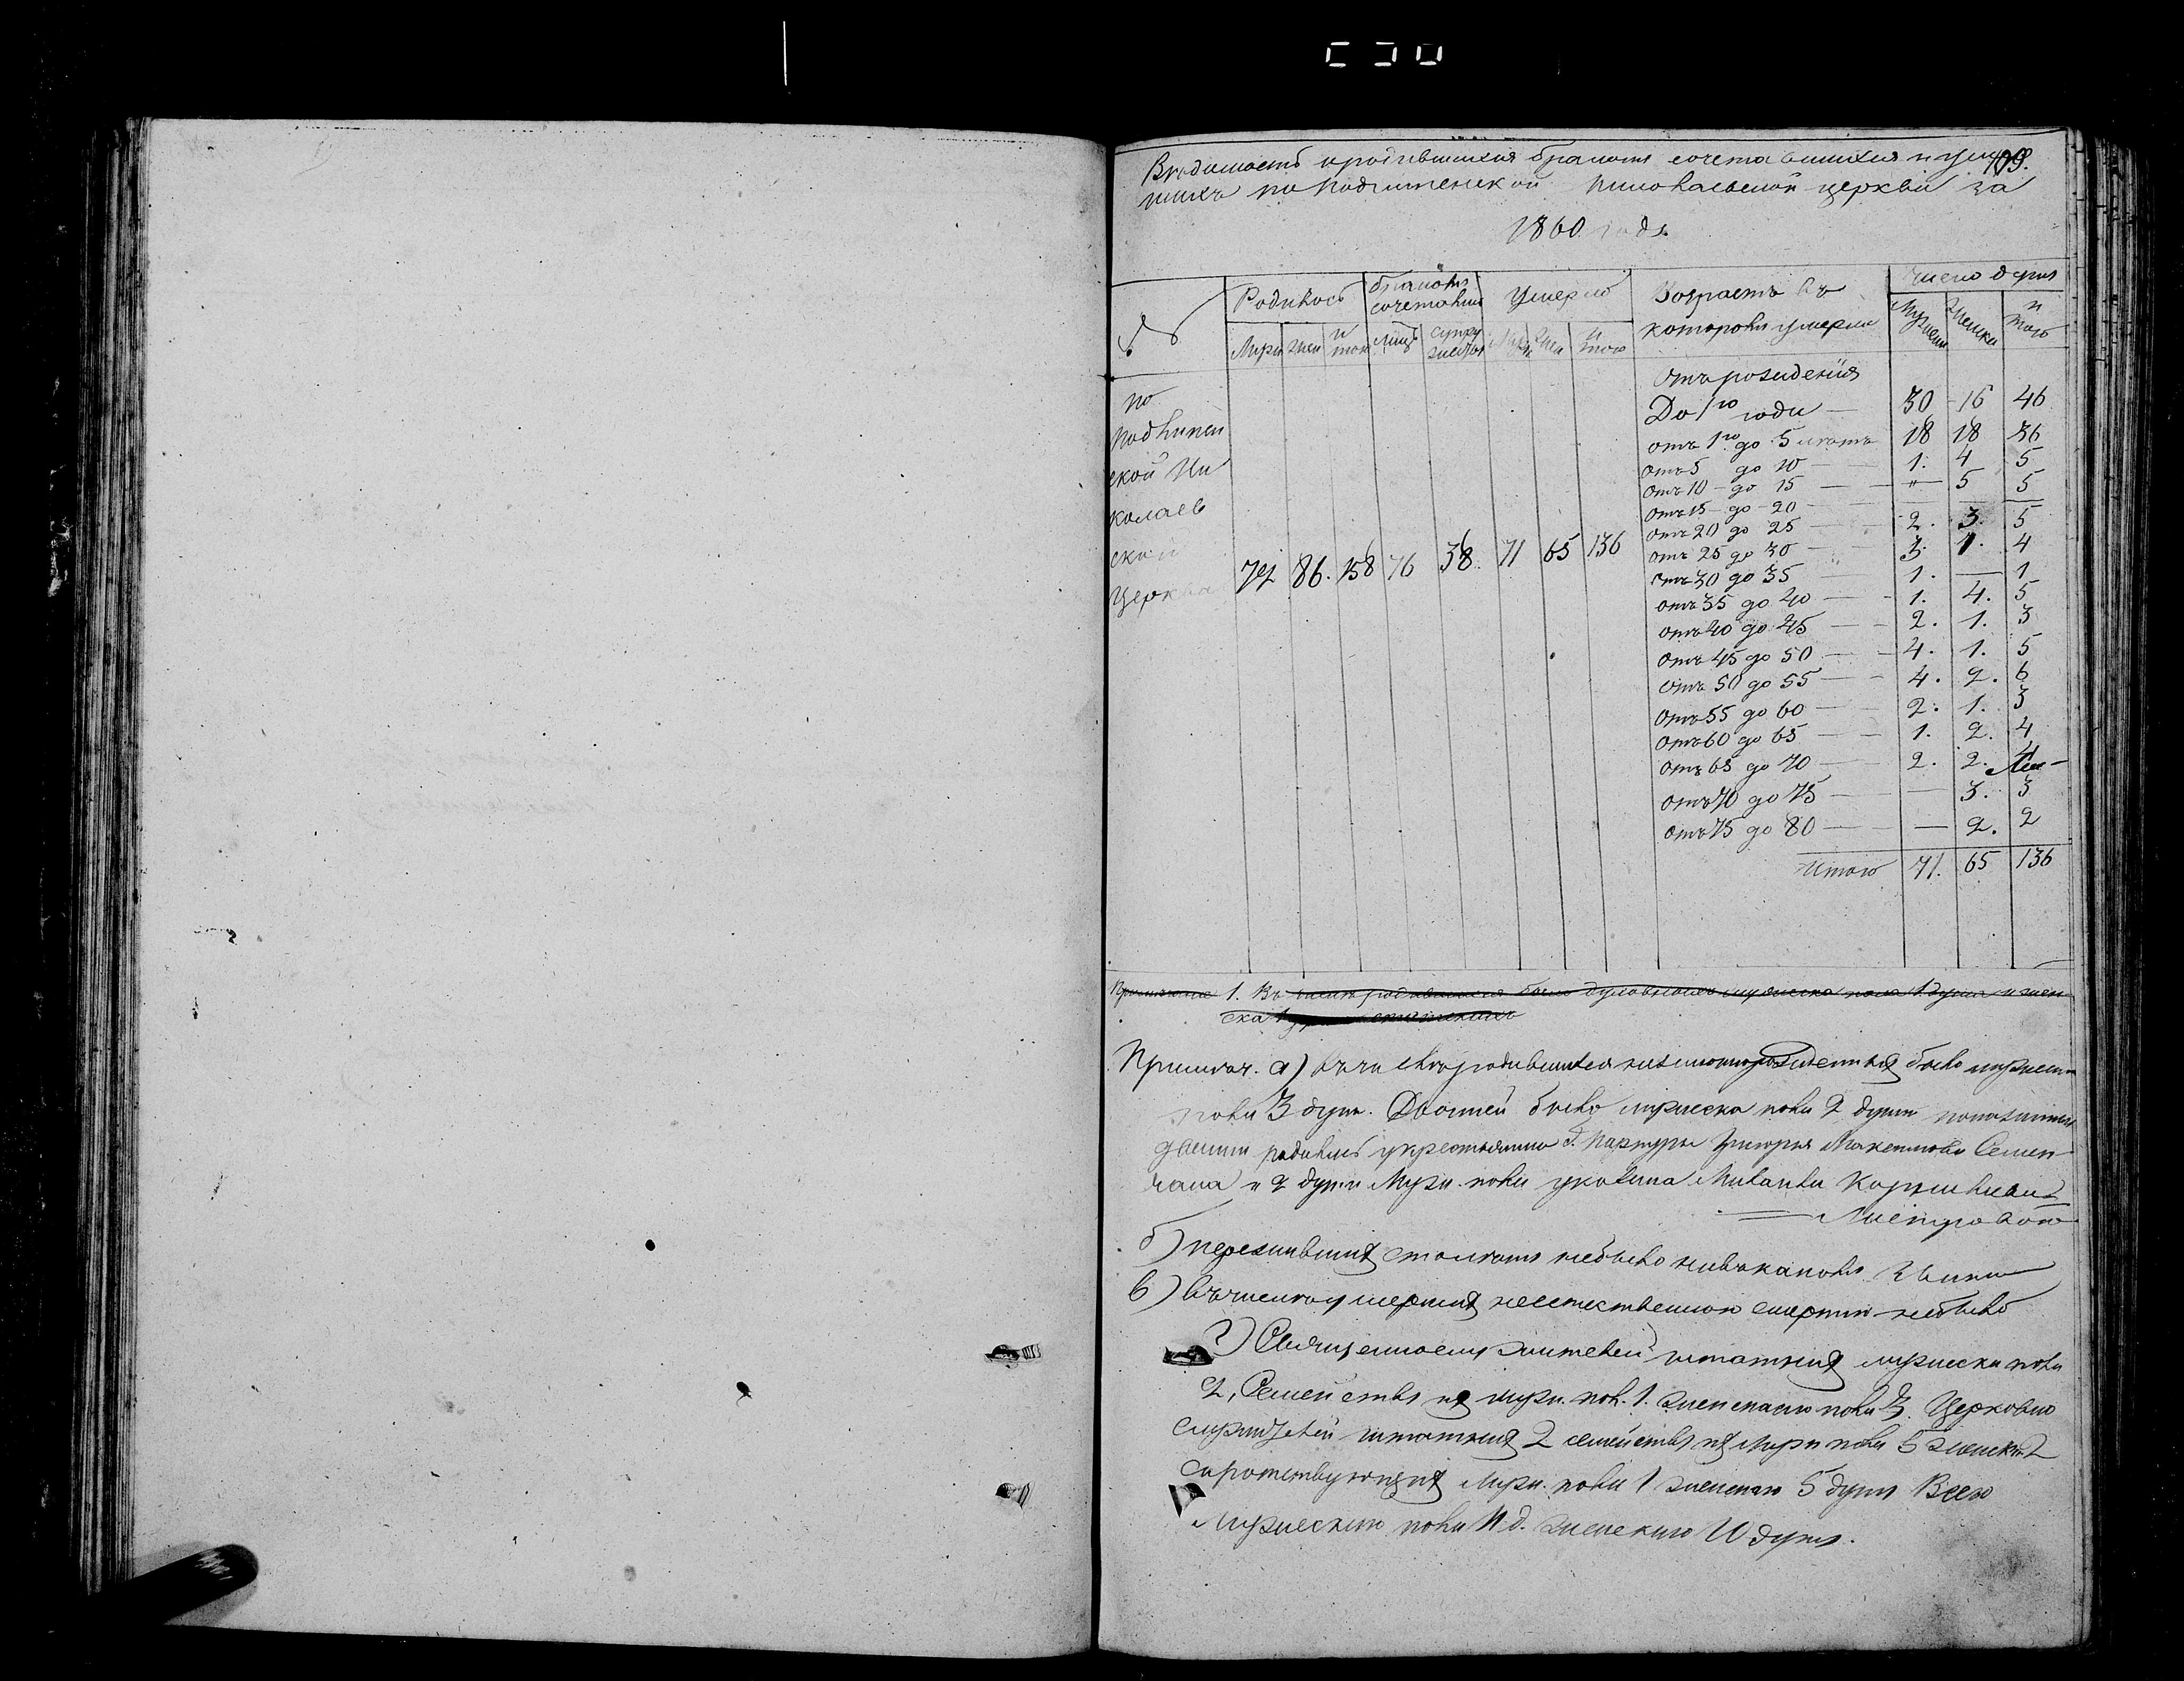 109.
Вѣдомость о родившихся бракомъ сочетавшихся и умер
шихъ по Подлипенской Николаевской церкви за
1860 годъ
Родилось бракомъ сочетавш Умерло Возрастъ въ которомъ умерли число душъ
Муж жен и того лицъ супружествъ Муж жен и того Мужеска женска и того
Отъ рожденія
По До 1го года — 30 16 46
Подлипен отъ 1го до 5 лѣтъ 18 18 36
ской Ни отъ 5 до 10 — 1. 4 5
отъ 10 до 15 — " 5 5
колаев отъ 15 до 20 —
отъ 20 до 25 — 2. 3. 5
ской отъ 25 до 30 — 3. 1. 4
72 86. 158 76 38. 71 65 136
Церкви отъ 30 до 35 — 1. — 1
отъ 35 до 40 — 1. 4. 5
отъ 40 до 45 — 2. 1. 3
отъ 45 до 50 — 4. 1. 5
отъ 50 до 55 — 4. 2. 6
отъ 55 до 60 — 2. 1. 3
отъ 60 до 65 — 1. 2. 4
отъ 65 до 70 — 2. 2. 4
отъ 70 до 75 — — 3. 3
отъ 75 до 80 — — 2. 2
Итого 71. 65 136
Примѣчаніе 1. Въ числѣ родившихся было
Примѣч. а) въ числѣ родившихся незаконнорожденныхъ было мужеск
пола 3 душ. Двойней было мужеска пола 2 души
двойни родились у крестьянина Г. Григорья Семен
и 2 души Муж. пола у козака
б) пережившихъ сто лѣтъ небыло никакова званія
в) въ числѣ умершихъ неестественною смертію небыло
г) Священнослужителей штатныхъ мужеска пола
2, Семейства ихъ муж. пол. 1. женскаго пола 3. Церковно
служителей штатныхъ 2 семейства ихъ муж пола 5 женск. 2
сиротствующихъ муж. пола 1 женскаго 5 душъ Всего
Мужескаго пола 11 д. женскаго 10 душъ.